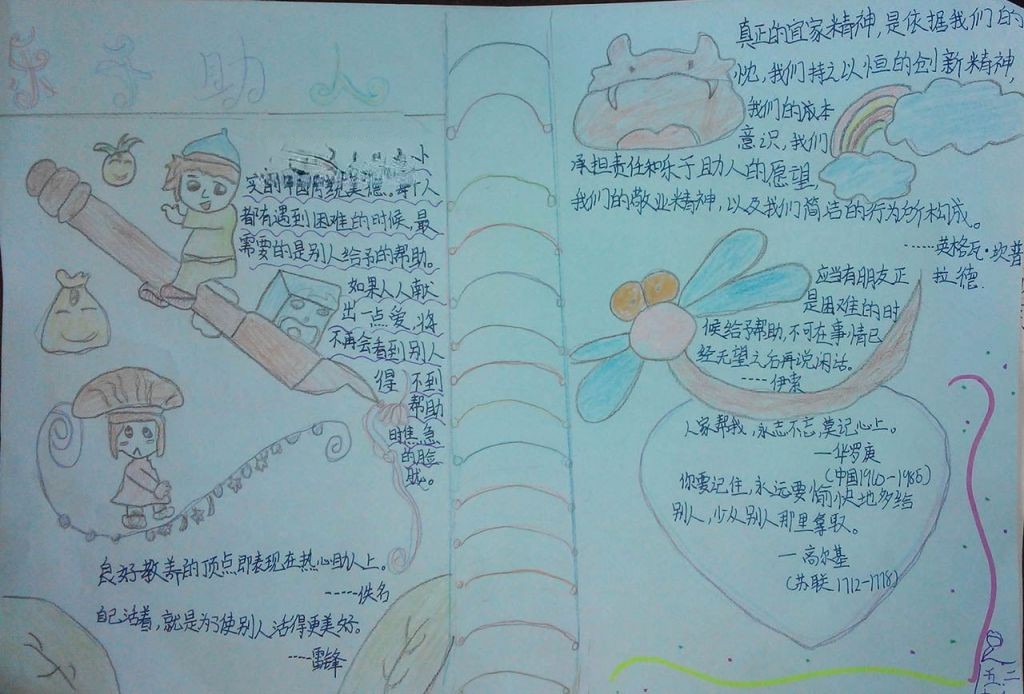 乐于助人
实的中国传统美德。每个人
都有遇到困难的时候,最
需要的是别人给予的帮助。
如果人人献
出一点爱,将
不再会看到别人
得不到
帮助
时焦急
的脸
耽。
良好教养的顶点即表现在热心助人上。
-----佚名
自己活着,就是为了使别人活得更美好。
----雷锋
真正的宜家精神,是依据我们的
忱,我们持之以恒的创新精神,
我们的成本
意识,我们
承担责任和乐于助人的愿望,
我们的敬业精神,以及我们简洁的行为所构成。
------英格瓦·坎普
拉德.
应当有朋友正
是困难的时
候给予帮助,不可在事情已
经无望之后再说闲话。
----伊索
人家帮我,永志不忘,莫记心上。
—华罗庚
(中国1910-1985)
你要记住,永远要愉快地多给
别人,少从别人那里拿取。
—高尔基
(苏联1712-1778)
五.二